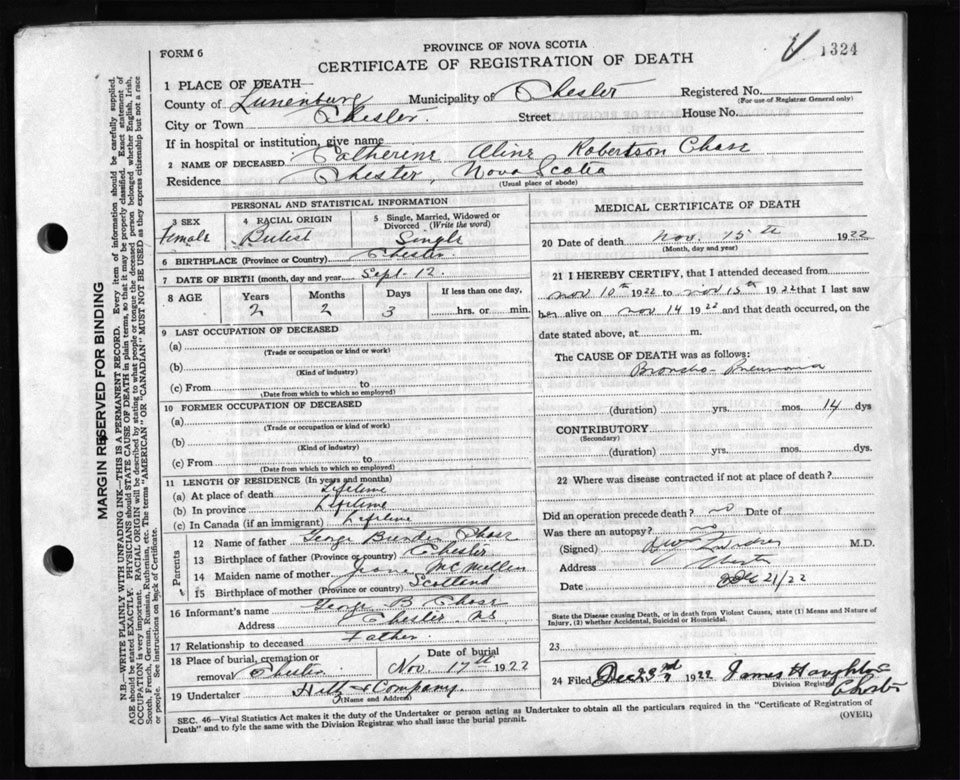 1324
FORM 6
PROVINCE OF NOVA SCOTIA
CERTIFICATE OF REGISTRATION OF DEATH
1 PLACE OF DEATH—
County of Lunenburg Municipality of Chester Registered No.
(For use of Registrar General only)
City or Town Chester. Street House No.
If in hospital or institution, give name
2 NAME OF DECEASED Catherine Aline Robertson Chase
Residence Chester, Nova Scotia
(Usual place of abode)
PERSONAL AND STATISTICAL INFORMATION
3 SEX Female
4 RACIAL ORIGIN British
5 Single, Married, Widowed or Divorced (Write the word) Single
6 BIRTHPLACE (Province or Country) Chester.
7 DATE OF BIRTH (month, day and year) Sept. 12.
8 AGE Years Months Days If less than one day,
2 2 3 hrs. or min.
9 LAST OCCUPATION OF DECEASED
(a)
(Trade or occupation or kind or work)
(b)
(Kind of industry)
(c) From to
(Date from which to which so employed)
10 FORMER OCCUPATION OF DECEASED
(a)
(Trade or occupation or kind of work)
(b)
(Kind of industry)
(c) From to
(Date from which to which so employed)
11 LENGTH OF RESIDENCE (In years and months)
(a) At place of death Lifetime
(b) In province Lifetime
(c) In Canada (if an immigrant) Lifetime
Parents
12 Name of father George Chase
13 Birthplace of father (Province or country) Chester
14 Maiden name of mother McMullen
15 Birthplace of mother (Province or country) Scotland
16 Informant's name George B. Chase
Address Chester N.S.
17 Relationship to deceased Father.
18 Place of burial, cremation or removal Chester
Date of burial Nov. 17th 1922
19 Undertaker Hiltz & Company.
(Name and Address)
MEDICAL CERTIFICATE OF DEATH
20 Date of death Nov. 15th 1922
(Month, day and year)
21 I HEREBY CERTIFY, that I attended deceased from
Nov 10th 1922 to Nov 15th 1922 that I last saw
her alive on Nov 14 1922 and that death occurred, on the
date stated above, at m.
The CAUSE OF DEATH was as follows:
Broncho-Pneumonia
(duration) yrs. mos. 14 dys
CONTRIBUTORY
(Secondary)
(duration) yrs. mos. dys.
22 Where was disease contracted if not at place of death?
Did an operation precede death? no Date of
Was there an autopsy? no
(Signed) M.D.
Address Chester
Date Dec 21/22
State the Disease causing Death, or in death from Violent Causes, state (1) Means and Nature of
Injury, (2) whether Accidental, Suicidal or Homicidal.
23
24 Filed Dec 23rd 1922 James
Division Registrar
Chester
SEC. 46—Vital Statistics Act makes it the duty of the Undertaker or person acting as Undertaker to obtain all the particulars required in the "Certificate of Registration of
Death" and to fyle the same with the Division Registrar who shall issue the burial permit.
(OVER)
MARGIN RESERVED FOR BINDING
N.B.—WRITE PLAINLY WITH UNFADING INK—THIS IS A PERMANENT RECORD. Every item of information should be carefully supplied.
AGE should be stated EXACTLY. PHYSICIANS should STATE CAUSE OF DEATH in plain terms, so that it may be properly classified. Exact statement of
OCCUPATION is very important. RACIAL ORIGIN will be described by stating to what people or tongue the deceased person belonged whether English, Irish,
Scotch, French, German, Russian, Ruthenian, etc. The terms "AMERICAN" OR "CANADIAN" MUST NOT BE USED as they express citizenship but not a race
or people. See instructions on back of Certificate.